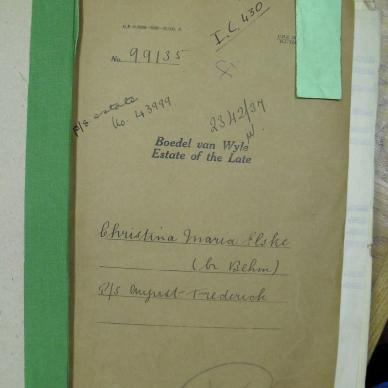 I.C 430
No. 99135
P/s estate
No. 43999
2342/37
Boedel van Wyle
Estate of the Late
Christina Maria Elske
(br Behm)
P/s August Frederick